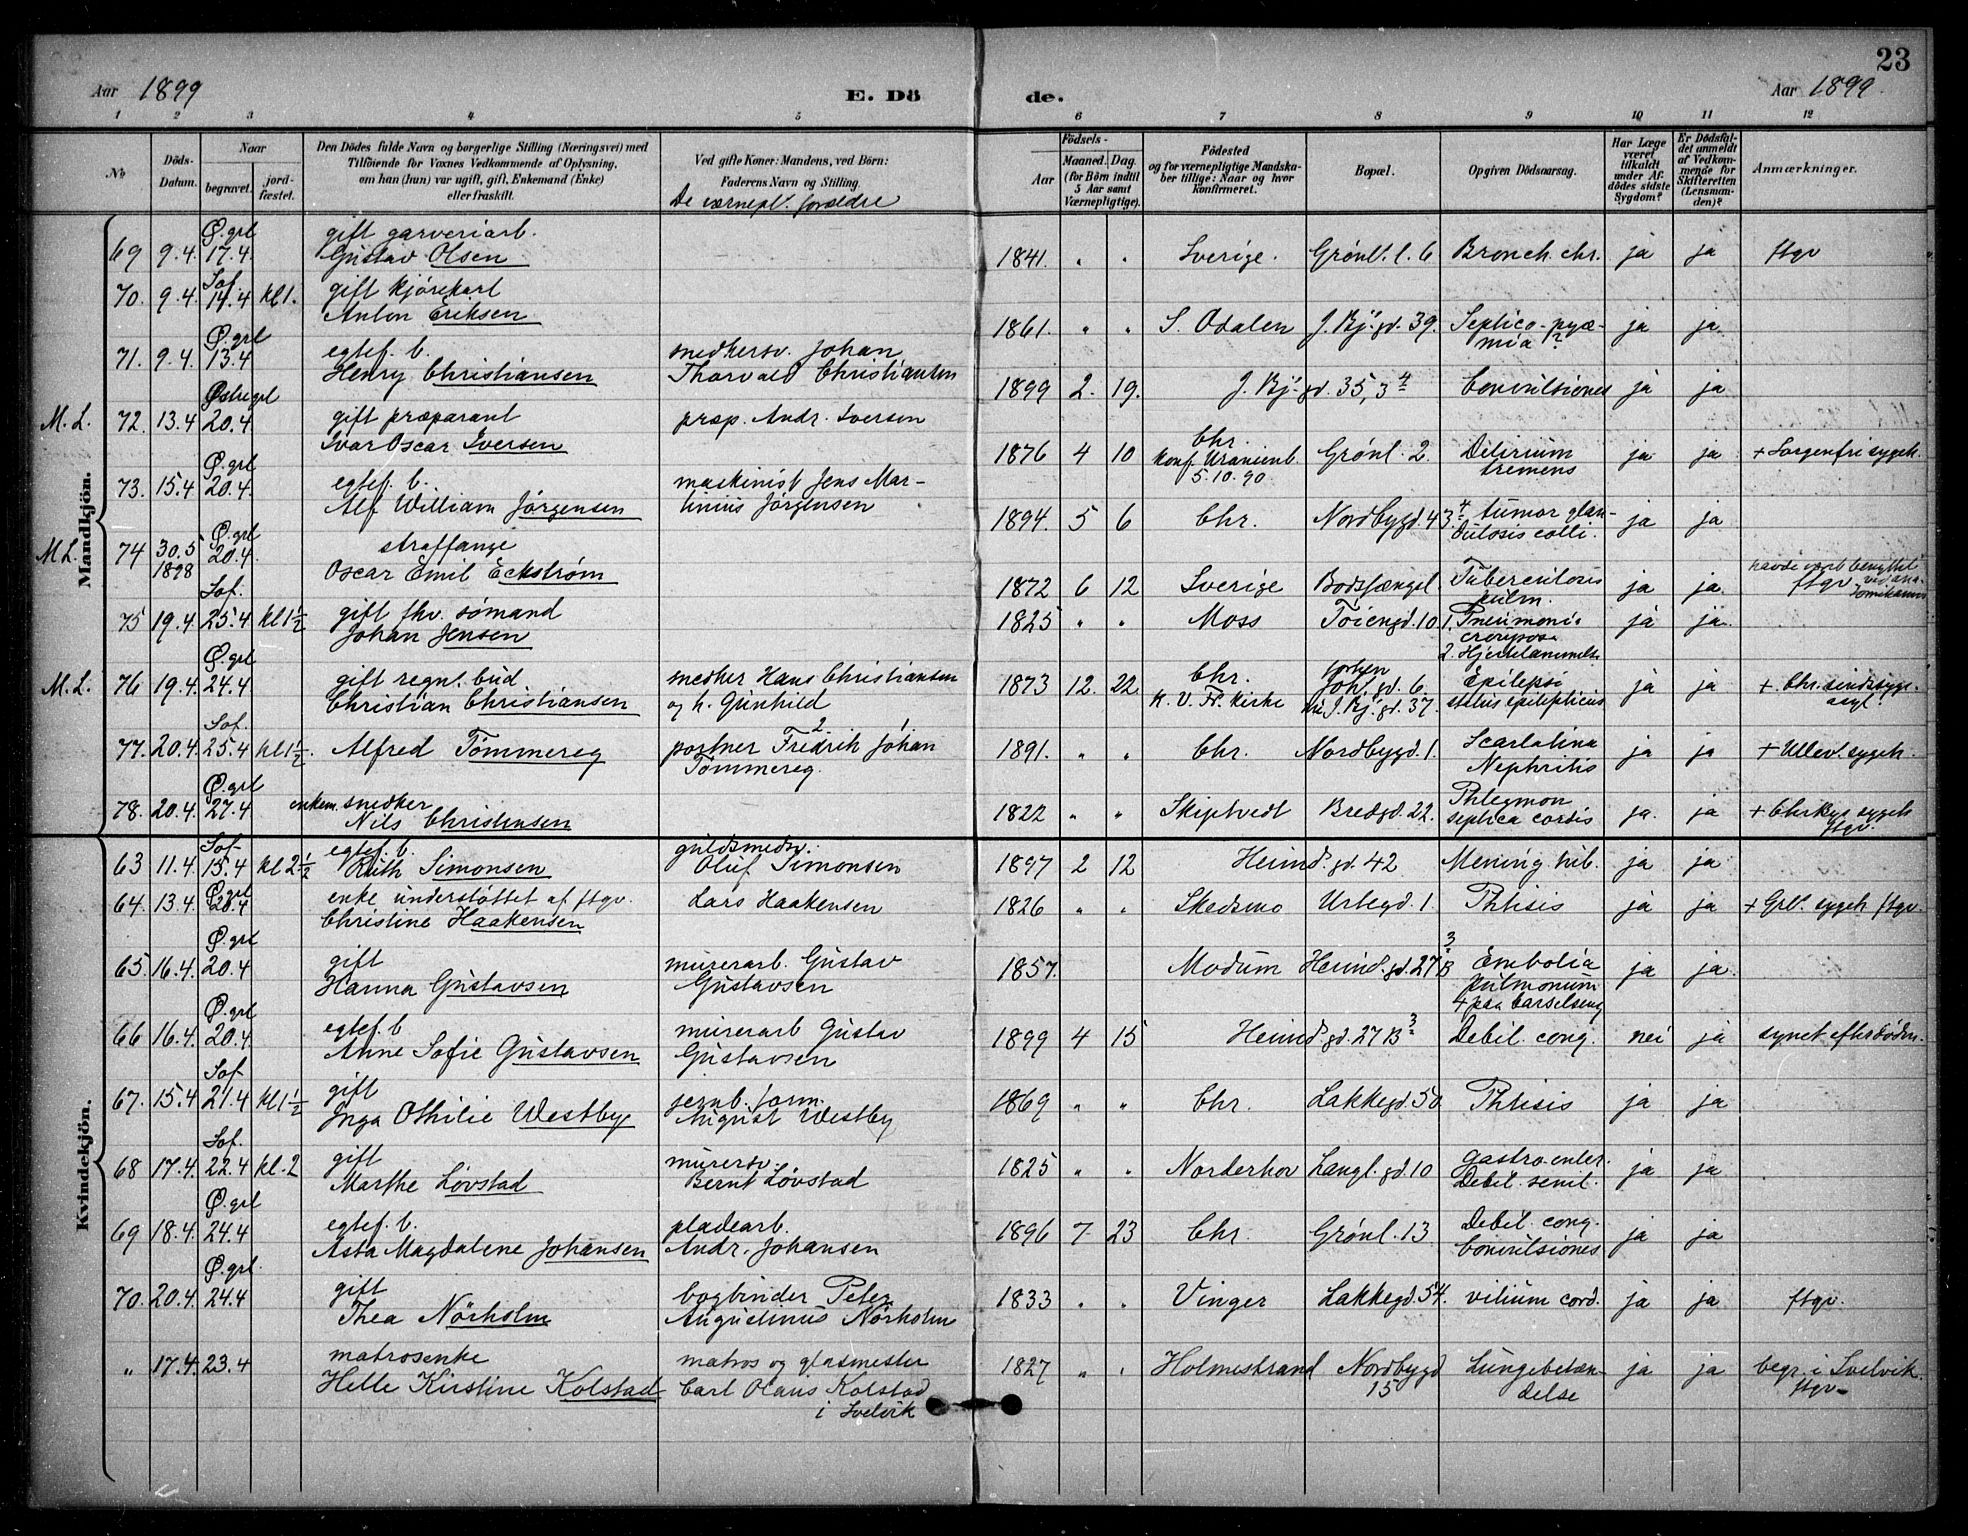 23
Aar 1899 E. Dö de. Aar 1899.
1 2 3 4 5 6 7 8 9 10 11 12
No
Döds-Datum.
Naar
begravet.
jord-fæstet.
Den Dödes fulde Navn og borgerlige Stilling (Næringsvei) med
Tilföiende for Voxnes Vedkommende af Oplysning,
om han (hun) var ugift, gift, Enkemand (Enke)
eller fraskilt.
Ved gifte Koner: Mandens, ved Börn:
Faderens Navn og Stilling.
De værnepl. forældre
Födsels-
Aar
Maaned.
Dag.
(for Börn indtil
5 Aar samt
Værnepligtige).
Födested
og for værnepligtige Mandska-
ber tillige: Naar og hvor
konfirmeret.
Bopæl.
Opgiven Dödsaarsag.
Har Læge
været
tilkaldt
under Af-
dödes sidste
Sygdom?
Er Dödsfal-
det anmeldt
af Vedkom-
mende for
Skifteretten
(Lensman-
den)?
Anmærkninger.
Mandkjön.
Ø. grl gift garveriarb.
69 9.4. 17.4. Gustav Olsen 1841. " " Sverige. Grönl. l. 6 Bronch. chr. ja ja ftgv
Sof. gift kjørekarl
70. 9.4. 14.4 kl 1. Anton Eriksen 1861. " " S. Odalen J. Bj. gd. 39. Septico-pyæ-
mia? ja ja
Ø. grl egtef. b. snedkersv. Johan
71. 9.4. 13.4 Henry Christiansen Thorvald Christiansen 1899 2. 19. J. Bj. gd. 35, 3 Convulsiones ja ja
Østregrl
M. L. 72. 13.4 20.4 gift præparant præp. Andr. Iversen
Ivar Oscar Iversen 1876 4 10 Chr.
konf. Uranienb.
5.10.90 Grönl. 2. Delirium
tremens ja ja + Sorgenfri sygeh.
Ø. grl egtef. b. maskinist Jens Mar-
73. 15.4 20.4. Alf William Jørgensen tinius Jørgensen 1894. 5 6 Chr. Nordbygd. 43. tumor glan-
dulosis colli. ja ja
Ø. grl straffange
M L. 74 30.5 1898 20.4. Oscar Emil Eckstrøm 1872 6 12 Sverige Bodsfængel Tuberculosis
pulm. ja ja. ftgv
Sof. gift fhv. sømand
75 19.4 25.4 kl 1½ Johan Jensen 1825 " " Moss Töiengd. 10 1. Pneumoni
crouposa
2. ja ja.
Ø. grl
M. L. 76 19.4. 24.4 gift regn. bud snedker Hans Christiansen
Christian Christiansen og h. Gunhild 1873 12. 22. Chr.
K. V. Fr. kirke Joh. gd. 6
J. Bj. gd. 37. Epilepsi
status epilepticus ja ja + Chr. sindssyge-
asyl.
Sof.
77. 20.4. 25.4 kl 1½. Alfred Tømmereg portner Fredrik Johan
Tømmereg. 1891. " " Chr. Nordbygd. 1. Scarlatina
Nephritis ja ja + Ullev. sygeh.
Ø. grl enkem. snedker
78. 20.4. 27.4 Nils Christensen 1822 " " Skiptvedt Bredgd. 22. Phlegmon
septica ja. ja + Chr. bys sygeh
ftgv.
Kvindekjön.
Sof. egtef. b. guldsmedsv.
63 11.4. 15.4 kl 2½ Ruth Simonsen Oluf Simonsen 1897 2 12 Heimd. gd. 42 Mening. tub. ja ja
Ø. grl enke understøttet af ftgv. Lars Haakensen
64. 13.4. 20.4 Christine Haakensen 1826 " " Skedsmo Urtegd. 1 Phtisis ja ja + Grl. sygeh. ftgv.
Ø. grl gift murerarb. Gustav
65. 16.4. 20.4 Hanna Gustavsen Gustavsen 1857. Modum Heimd. gd. 27 B 3 Embolia
pulmonum
+ paa barselseng ja ja
Ø. grl egtef. b. murerarb Gustav
66 16.4. 20.4 Anne Sofie Gustavsen Gustavsen 1899 4 15 Heimd. gd. 27 B 3 Debil. cong. nei ja synet efter døden.
Sof gift jernb. form.
67. 15.4 21.4 kl 1½ Inga Othilie Westbye August Westby 1869 " " Chr. Lakkegd. 50 Phtisis ja ja
Sof. gift murersv.
68 17.4. 22.4 kl. 2 Marthe Løvstad Bernt Løvstad 1825 " " Norderhov Langl. gd. 10 Gastro enter.
Debil. senil. ja ja
Ø. grl egtef. b. pladearb.
69 18.4. 24.4 Asta Magdalene Johansen Andr. Johansen 1896 7. 23 Chr. Grönl. 13 Debil. cong.
Convulsiones ja ja
Ø. grl. gift bogbinder Peter
70. 20.4. 24.4 Thea Nørholm Augustinus Nørholm 1833 " " Vinger Lakkegd. 54. vitium cord. ja ja ftgv.
matrosenke matros og glasmester
" 17.4. 23.4 Helle Kirstine Kolstad Carl Olaus Kolstad
i Svelvik 1827 " " Holmestrand Nordbygd
15 Lungebetæn-
delse ja ja begr. i Svelvik.
ftgv